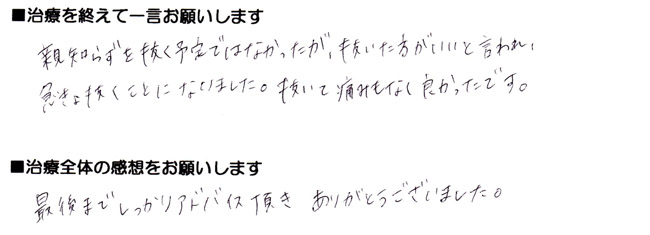 ■治療を終えて一言お願いします
親知らずを抜く予定ではなかったが、抜いた方がいいと言われ、
急きょ抜くことになりました。抜いて痛みもなく良かったです。
■治療全体の感想をお願いします
最後までしっかりアドバイス頂き ありがとうございました。